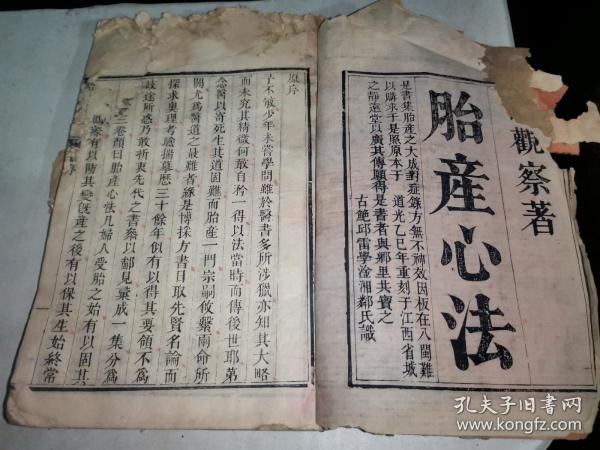 觀察著
胎產心法
是書集胎產之大成對症錄方無不神效因板在八閩難
以購求于是照原本于 道光乙巳年重刻于江西省城
之靜遠堂以廣其傳願得是書者與鄉里共寶之
古艴邱雷學淦湘鄰氏識
原序
予不敏少年未嘗學問雖於醫書多所涉獵亦知其大略
而未究其精微何敢自矜一得以法當時而傳後世耶第
念醫以寄死生其道固難而胎產一門宗嗣攸繫兩命所
關尤為醫道之最難者緣是博採方書目取先賢名論而
探求奧理考驗揣摹歷三十餘年似有以得其要領不為
歧途所惑乃敢折衷先代之書參以鄙見彙成一集分為
三卷顏曰胎產心法凡婦人受胎之始有以固其
產有以防其變既產之後有以保其生始終常
孔夫子旧书网
www.kongfz.com